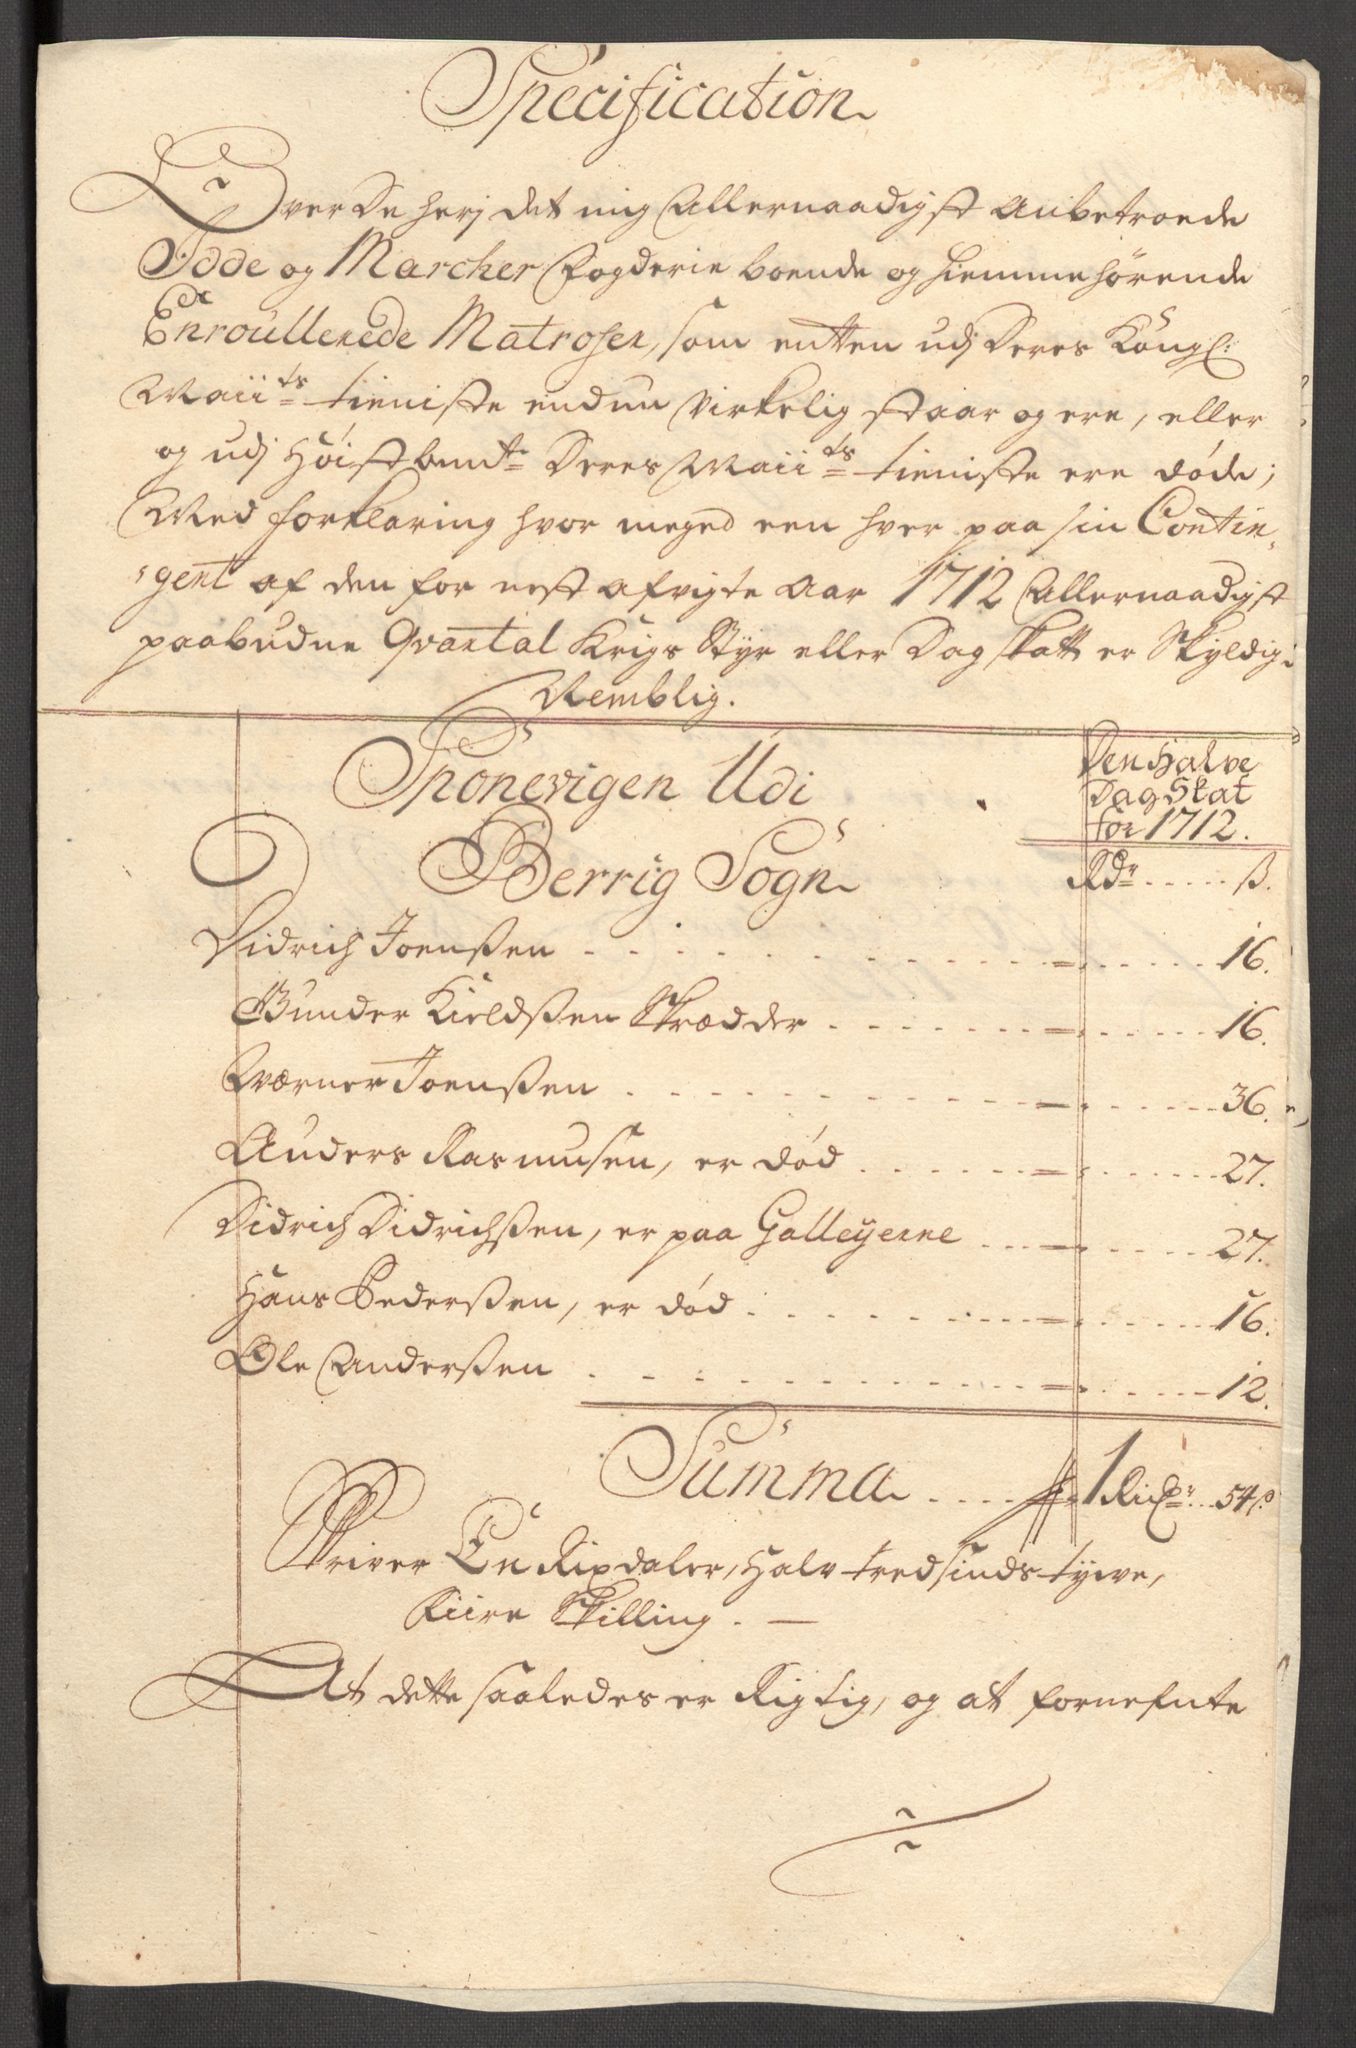 Specification
Over De herj det mig Allernaadigst Anbetroede
Idde og Marcher Fogderie boende og hiemmehørende
Enroullerede Matroser, som entten udj Deres Kongl:
Maii:ts tieniste endnu Virkelig staar og ere, eller
og udj Høistbemte Deres Maii:ts tieniste ere døde;
Med forklaring hvor meged een hver paa sin Contin-
gent af den for nest afvigte Aar 1712 Allernaadigst
paabudne Qvartal Krigs Styr eller Dag skatt er Skyldig:
Nemblig.
Sponevigen Udi
Berrig Sogn
Den Halve
Dag Skat
for 1712.
Rdr ..... ß.
Didrich Joenßen . . . = . . . 16.
Gunder Kieldßen Skrædder . . . = . . . 16.
Værner Joenßen . . . = . . . 36.
Anders Rasmusen, er død . . . = . . . 27.
Didrich Didrichßen, er paa Galleyerne . . . = . . . 27.
Hans Pederßen, er død . . . = . . . 16.
Ole Anderßen . . . = . . . 12.
Summa . . . 1 Rixdr. . . 54 ß
Skriver En Rixdaler, Halv tredsinds tyve,
Fiire Skilling. —
At dette saaledes er Rigtig, og at fornefnte